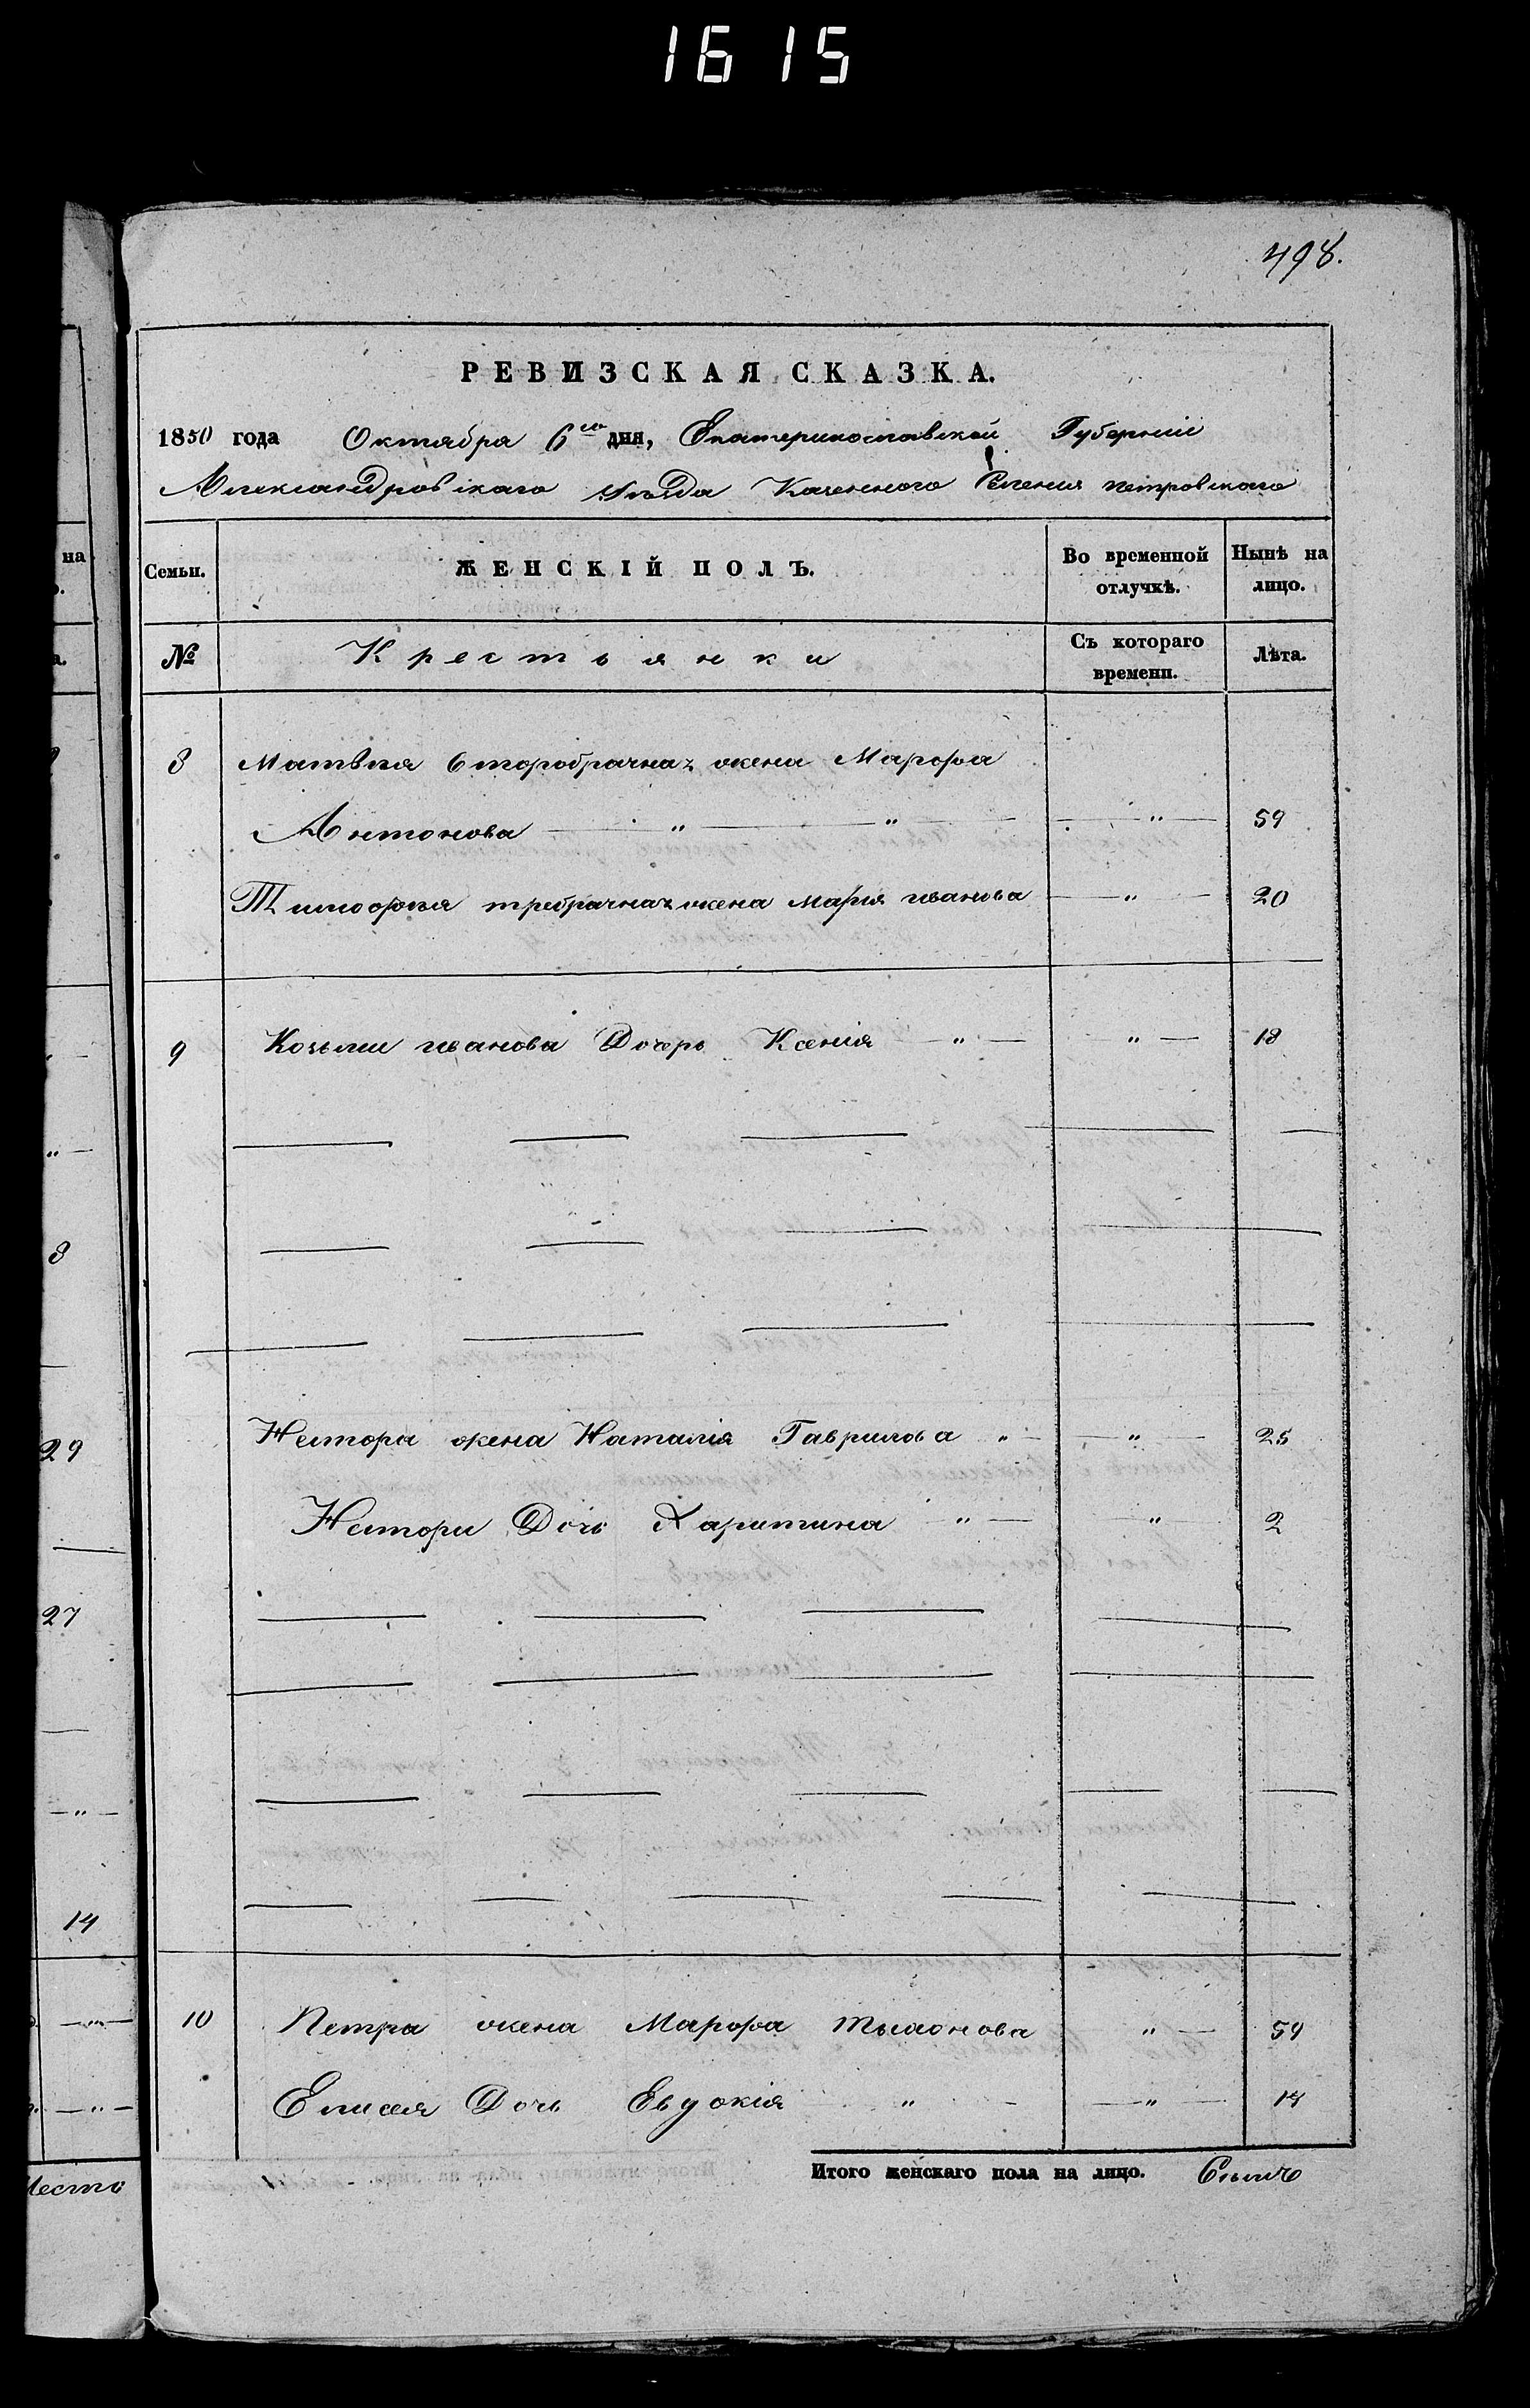 1615
498.
РЕВИЗСКАЯ СКАЗКА.
1850 года Октября 6го дня, Екатеринославской Губернии
Александровскаго уѣзда Казенного Селения петровскаго
Семьи. ЖЕНСКІЙ ПОЛЪ. Во временной отлучкѣ. Нынѣ на лицо.
№ Крестьянки Съ котораго времени. Лѣта.
8 Матвѣя второбрачная жена Марфа
Антонова — " — " — — " — 59
Тимофѣя требрачная жена Марія иванова — " — 20
9 Козьмы иванова Дочерь Ксенія — " — " — 18
Нестора жена Наталія Гаврилова " — — " — 25
Нестора Дочь Харитина — " — — " — 2
10 Петра жена Марфа " — 59
Елисея Дочь Евдокія " — — " — 14
Итого женскаго пола на лицо. Семь
на
8
29
27
14